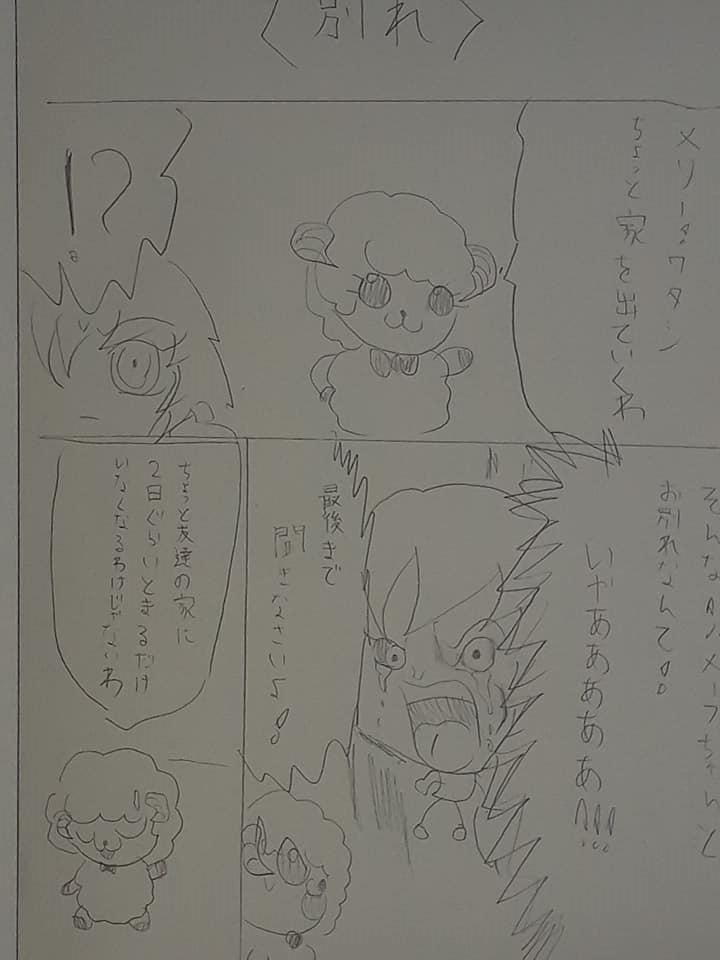 〈別れ〉
メリー、ワタシ
ちょっと家を出ていくわ
!?
そんな
メーフちゃんと
お別れなんて!!
いやああああああ!!!
最後まで
聞きなさいよ!!
ちょっと友達の家に
2日ぐらいとまるだけ
いなくなるわけじゃないわ